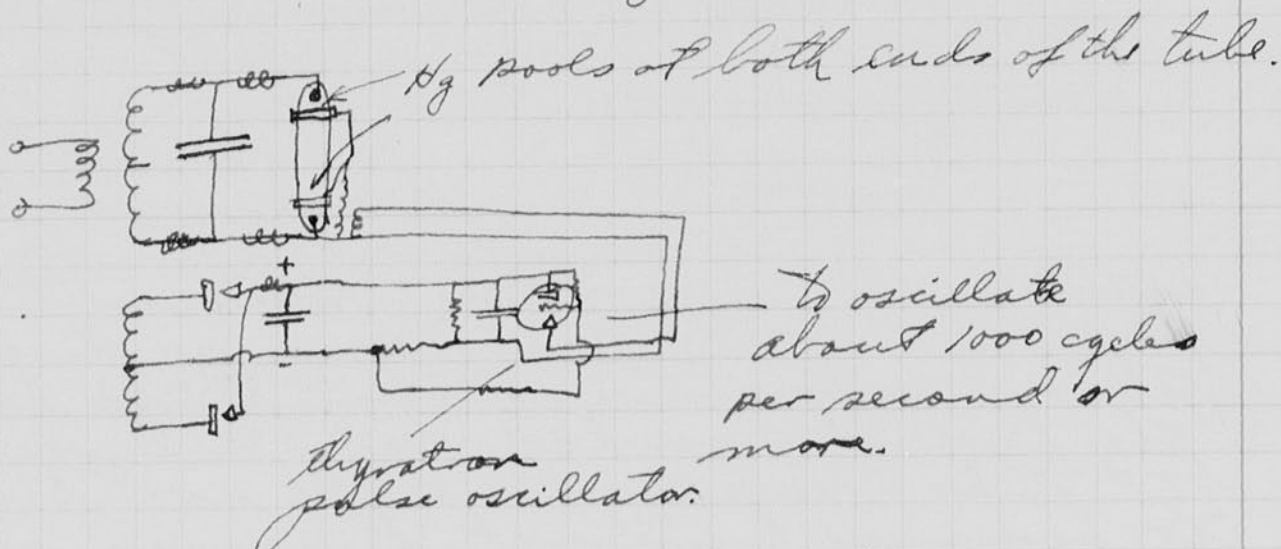 Hg pools at both ends of the tube.
+
-
To oscillate
about 1000 cycles
per second or
more.
thyratron
pulse oscillator.